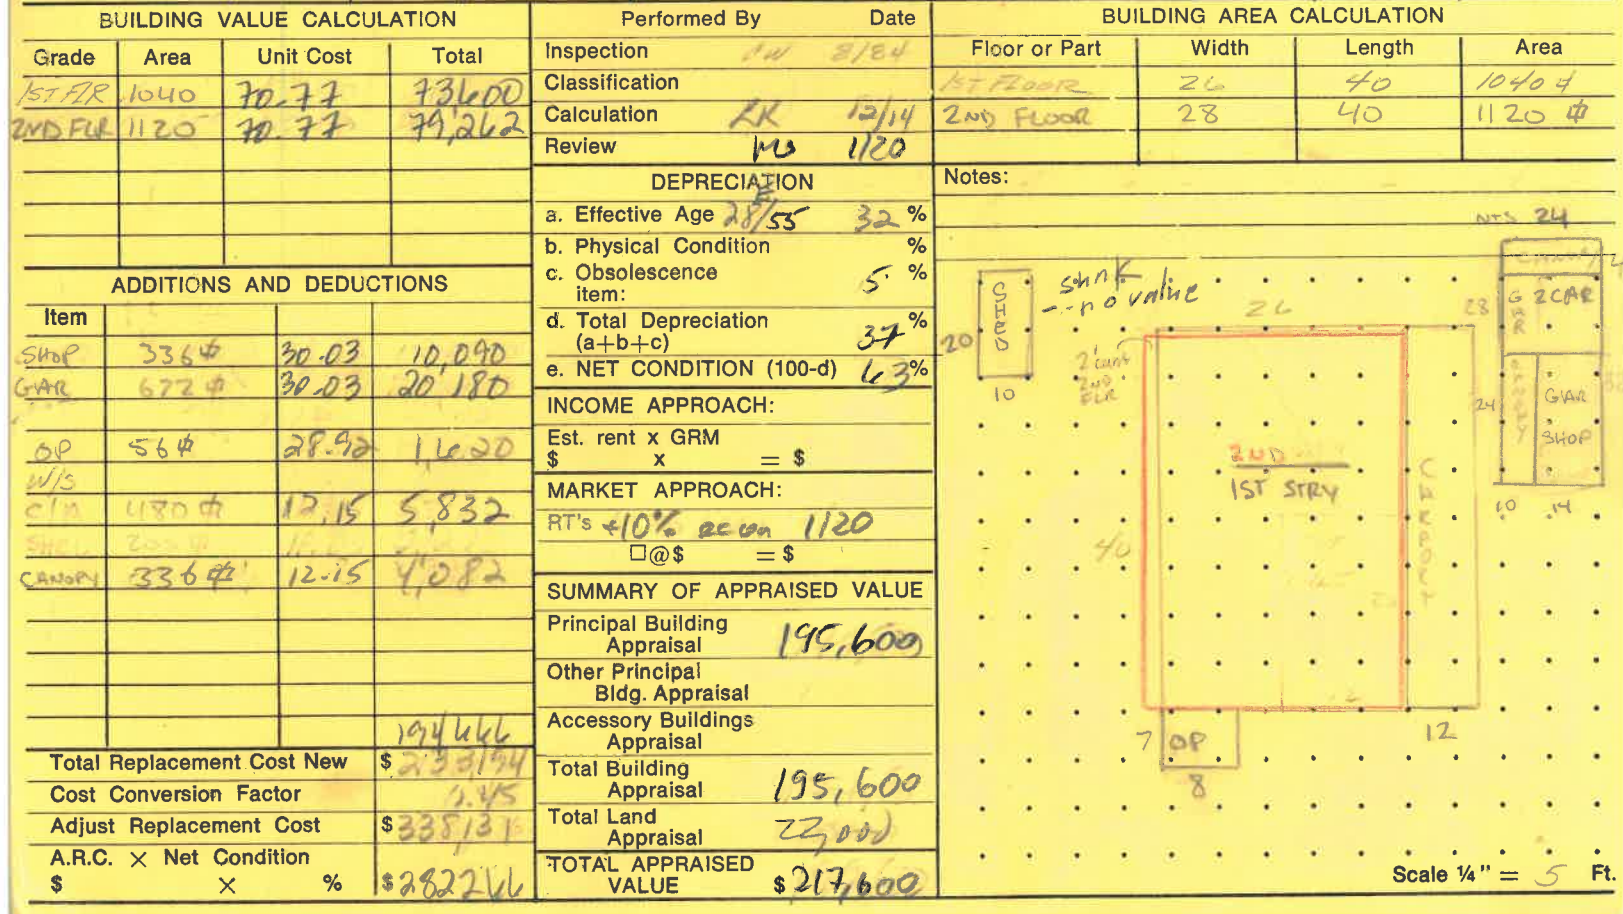 BUILDING VALUE CALCULATION
Grade Area Unit Cost Total
1ST FLR 1040 70.77 73600
2ND FLR 1120 70.77 79,262
ADDITIONS AND DEDUCTIONS
Item
SHOP 336⌗ 30.03 10,090
GAR 672⌗ 30.03 20 180
OP 56⌗ 28.92 1,620
W/S
480⌗ 12.15 5,832
CANOPY 336⌗ 12.15 4,082
194666
Total Replacement Cost New $233194
Cost Conversion Factor 1.45
Adjust Replacement Cost $338131
A.R.C. × Net Condition
$ × % $282266
Performed By Date
Inspection CW 8/84
Classification
Calculation LK 12/14
Review 1/20
DEPRECIATION
E
a. Effective Age 28/55 32%
b. Physical Condition %
c. Obsolescence 5 %
item:
d. Total Depreciation 37%
(a+b+c)
e. NET CONDITION (100-d) 63%
INCOME APPROACH:
Est. rent x GRM
$ x = $
MARKET APPROACH:
RT's +10% recon 1/20
□@$ = $
SUMMARY OF APPRAISED VALUE
Principal Building
Appraisal 195,600
Other Principal
Bldg. Appraisal
Accessory Buildings
Appraisal
Total Building
Appraisal 195,600
Total Land
Appraisal 22,000
TOTAL APPRAISED
VALUE $217,600
BUILDING AREA CALCULATION
Floor or Part Width Length Area
1ST FLOOR 26 40 1040⌗
2ND FLOOR 28 40 1120⌗
Notes:
NTS 24
CANOPY
SHED
20
10
--- no value
26
28
GAR
2 CAR
2' cant
2ND FLR
24
CANOPY
GAR
SHOP
10 14
2ND
1ST STRY
40
CARPORT
7 OP
8
12
Scale ¼" = 5 Ft.